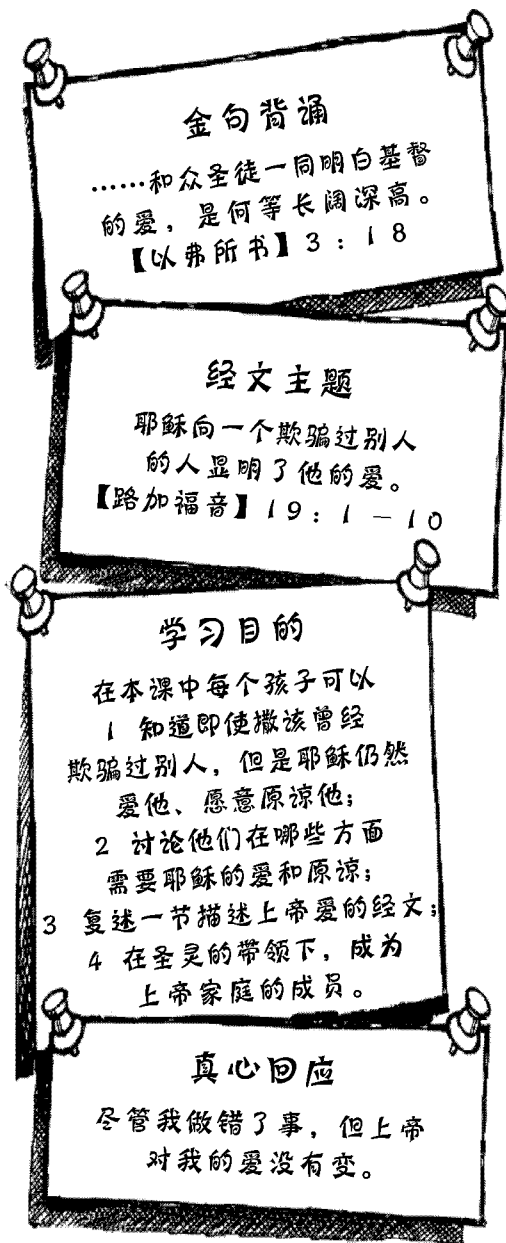 金句背诵
……和众圣徒一同明白基督
的爱，是何等长阔深高。
【以弗所书】3：18
经文主题
耶稣向一个欺骗过别人
的人显明了他的爱。
【路加福音】19：1－10
学习目的
在本课中每个孩子可以
1 知道即使撒该曾经
欺骗过别人，但是耶稣仍然
爱他、愿意原谅他；
2 讨论他们在哪些方面
需要耶稣的爱和原谅；
3 复述一节描述上帝爱的经文；
4 在圣灵的带领下，成为
上帝家庭的成员。
真心回应
尽管我做错了事，但上帝
对我的爱没有变。